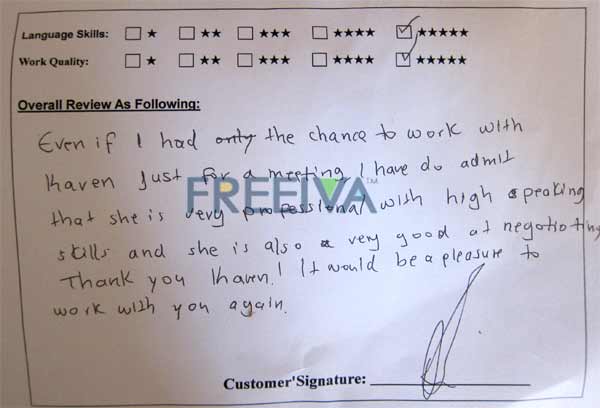 Language Skills: ☐ ★ ☐ ★★ ☐ ★★★ ☐ ★★★★ ☑ ★★★★★
Work Quality: ☐ ★ ☐ ★★ ☐ ★★★ ☐ ★★★★ ☑ ★★★★★
Overall Review As Following:
Even if I had only the chance to work with
Karen just for a meeting, I have do admit
FREEIVA™
that she is very professional with high speaking
skills and she is also very good at negotioting
Thank you Karen! It would be a pleasure to
work with you again.
Customer'Signature: